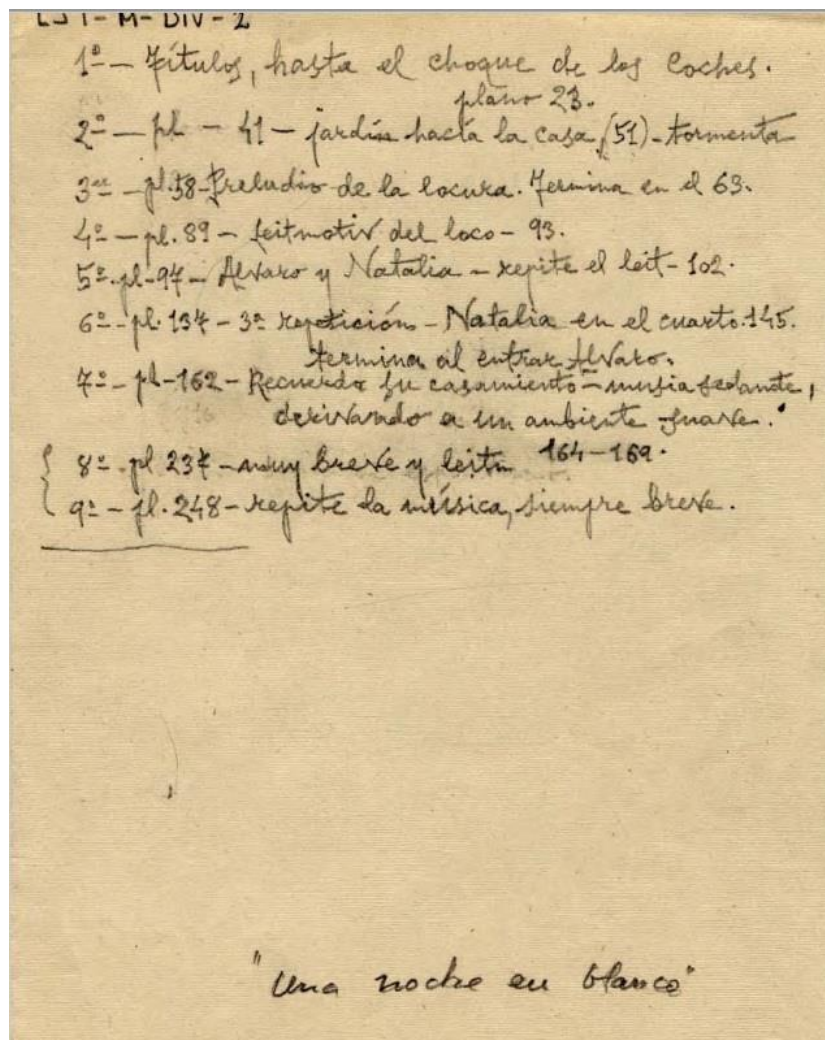 EST-M-DIV-2
1º - Títulos, hasta el choque de los coches.
plano 23.
2º - pl - 41 - jardín hacia la casa (51) - tormenta
3er - pl.58 - Preludio de la locura. Termina en el 63.
4º - pl. 89 - Leitmotiv del loco - 93.
5º - pl-97 - Alvaro y Natalia - repite el leit - 102.
6º - pl. 137 - 3ª repetición - Natalia en el cuarto. 145.
termina al entrar Alvaro.
7º - pl-162 - Recuerda su casamiento - musia sedante,
derivando a un ambiente suave.
8º - pl 237 - muy breve y leit 164-169.
9º - pl. 248 - repite la música, siempre breve.
"Una noche en blanco"